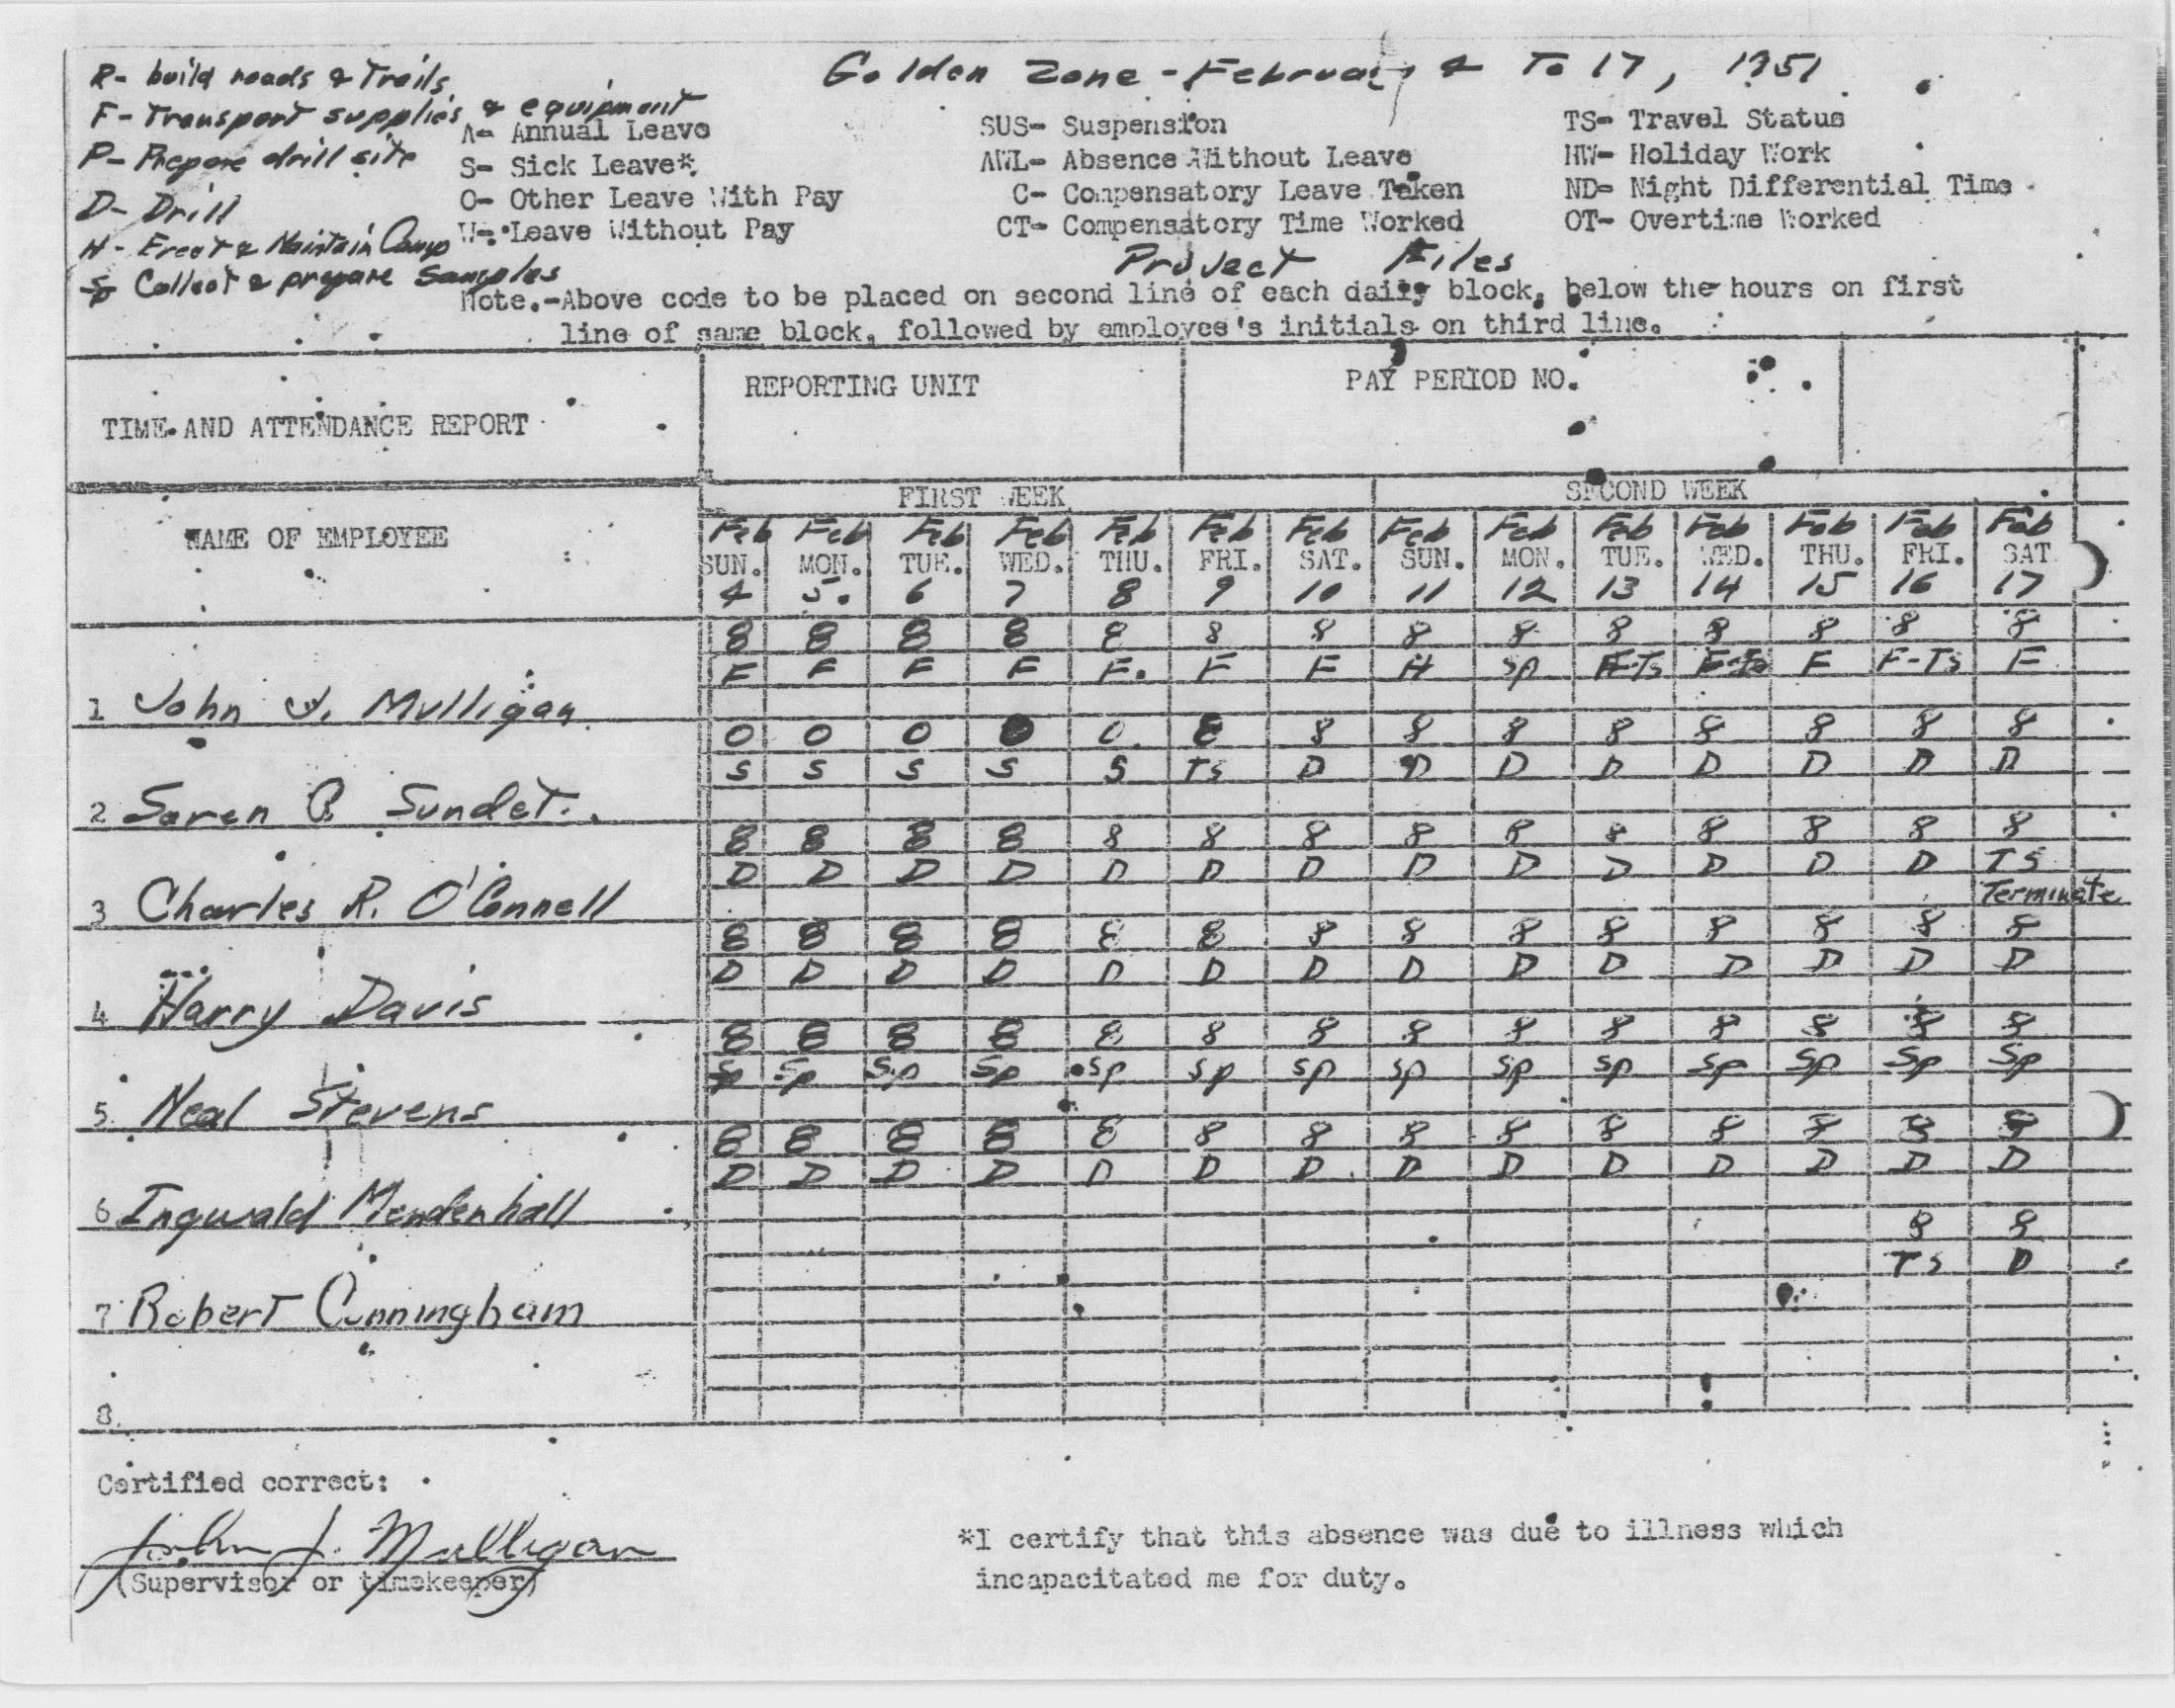 Golden Zone - February 4 To 17, 1951
R- build roads & Trails
F- Transport supplies & equipment
P- Prepare drill site
D- Drill
H- Erect & Maintain Camp
Sp Collect & prepare Samples
A- Annual Leave
S- Sick Leave*
O- Other Leave With Pay
W- Leave Without Pay
SUS- Suspension
AWL- Absence Without Leave
C- Compensatory Leave Taken
CT- Compensatory Time Worked
TS- Travel Status
HW- Holiday Work
ND- Night Differential Time
OT- Overtime Worked
Project Files
Note.-Above code to be placed on second line of each daily block, below the hours on first
line of same block, followed by employee's initials on third line.
TIME AND ATTENDANCE REPORT
REPORTING UNIT
PAY PERIOD NO.
NAME OF EMPLOYEE
FIRST WEEK SECOND WEEK
Feb Feb Feb Feb Feb Feb Feb Feb Feb Feb Feb Feb Feb Feb
SUN. MON. TUE. WED. THU. FRI. SAT. SUN. MON. TUE. WED. THU. FRI. SAT
4 5 6 7 8 9 10 11 12 13 14 15 16 17
8 8 8 8 8 8 8 8 8 8 8 8 8 8
F F F F F F F H Sp F-Ts F-Ts F F-Ts F
1 John J. Mulligan
0 0 0 0 0 8 8 8 8 8 8 8 8 8
S S S S S TS D D D D D D D D
2 Soren O. Sundet
8 8 8 8 8 8 8 8 8 8 8 8 8 8
D D D D D D D D D D D D D TS
Terminate
3 Charles R. O'Connell
8 8 8 8 8 8 8 8 8 8 8 8 8 8
D D D D D D D D D D D D D D
4 Harry Davis
8 8 8 8 8 8 8 8 8 8 8 8 8 8
Sp Sp Sp Sp Sp Sp Sp Sp Sp Sp Sp Sp Sp Sp
5 Neal Stevens
8 8 8 8 8 8 8 8 8 8 8 8 8 8
D D D D D D D D D D D D D D
6 Ingwald Mendenhall
8 8
TS D
7 Robert Cunningham
8.
Certified correct:
John J. Mulligan
(Supervisor or timekeeper)
*I certify that this absence was due to illness which
incapacitated me for duty.